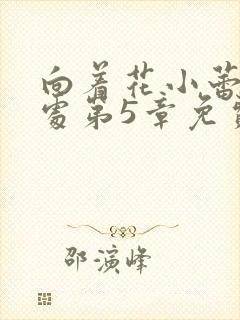 向着花小蕾
处第5章免费
邵演峰